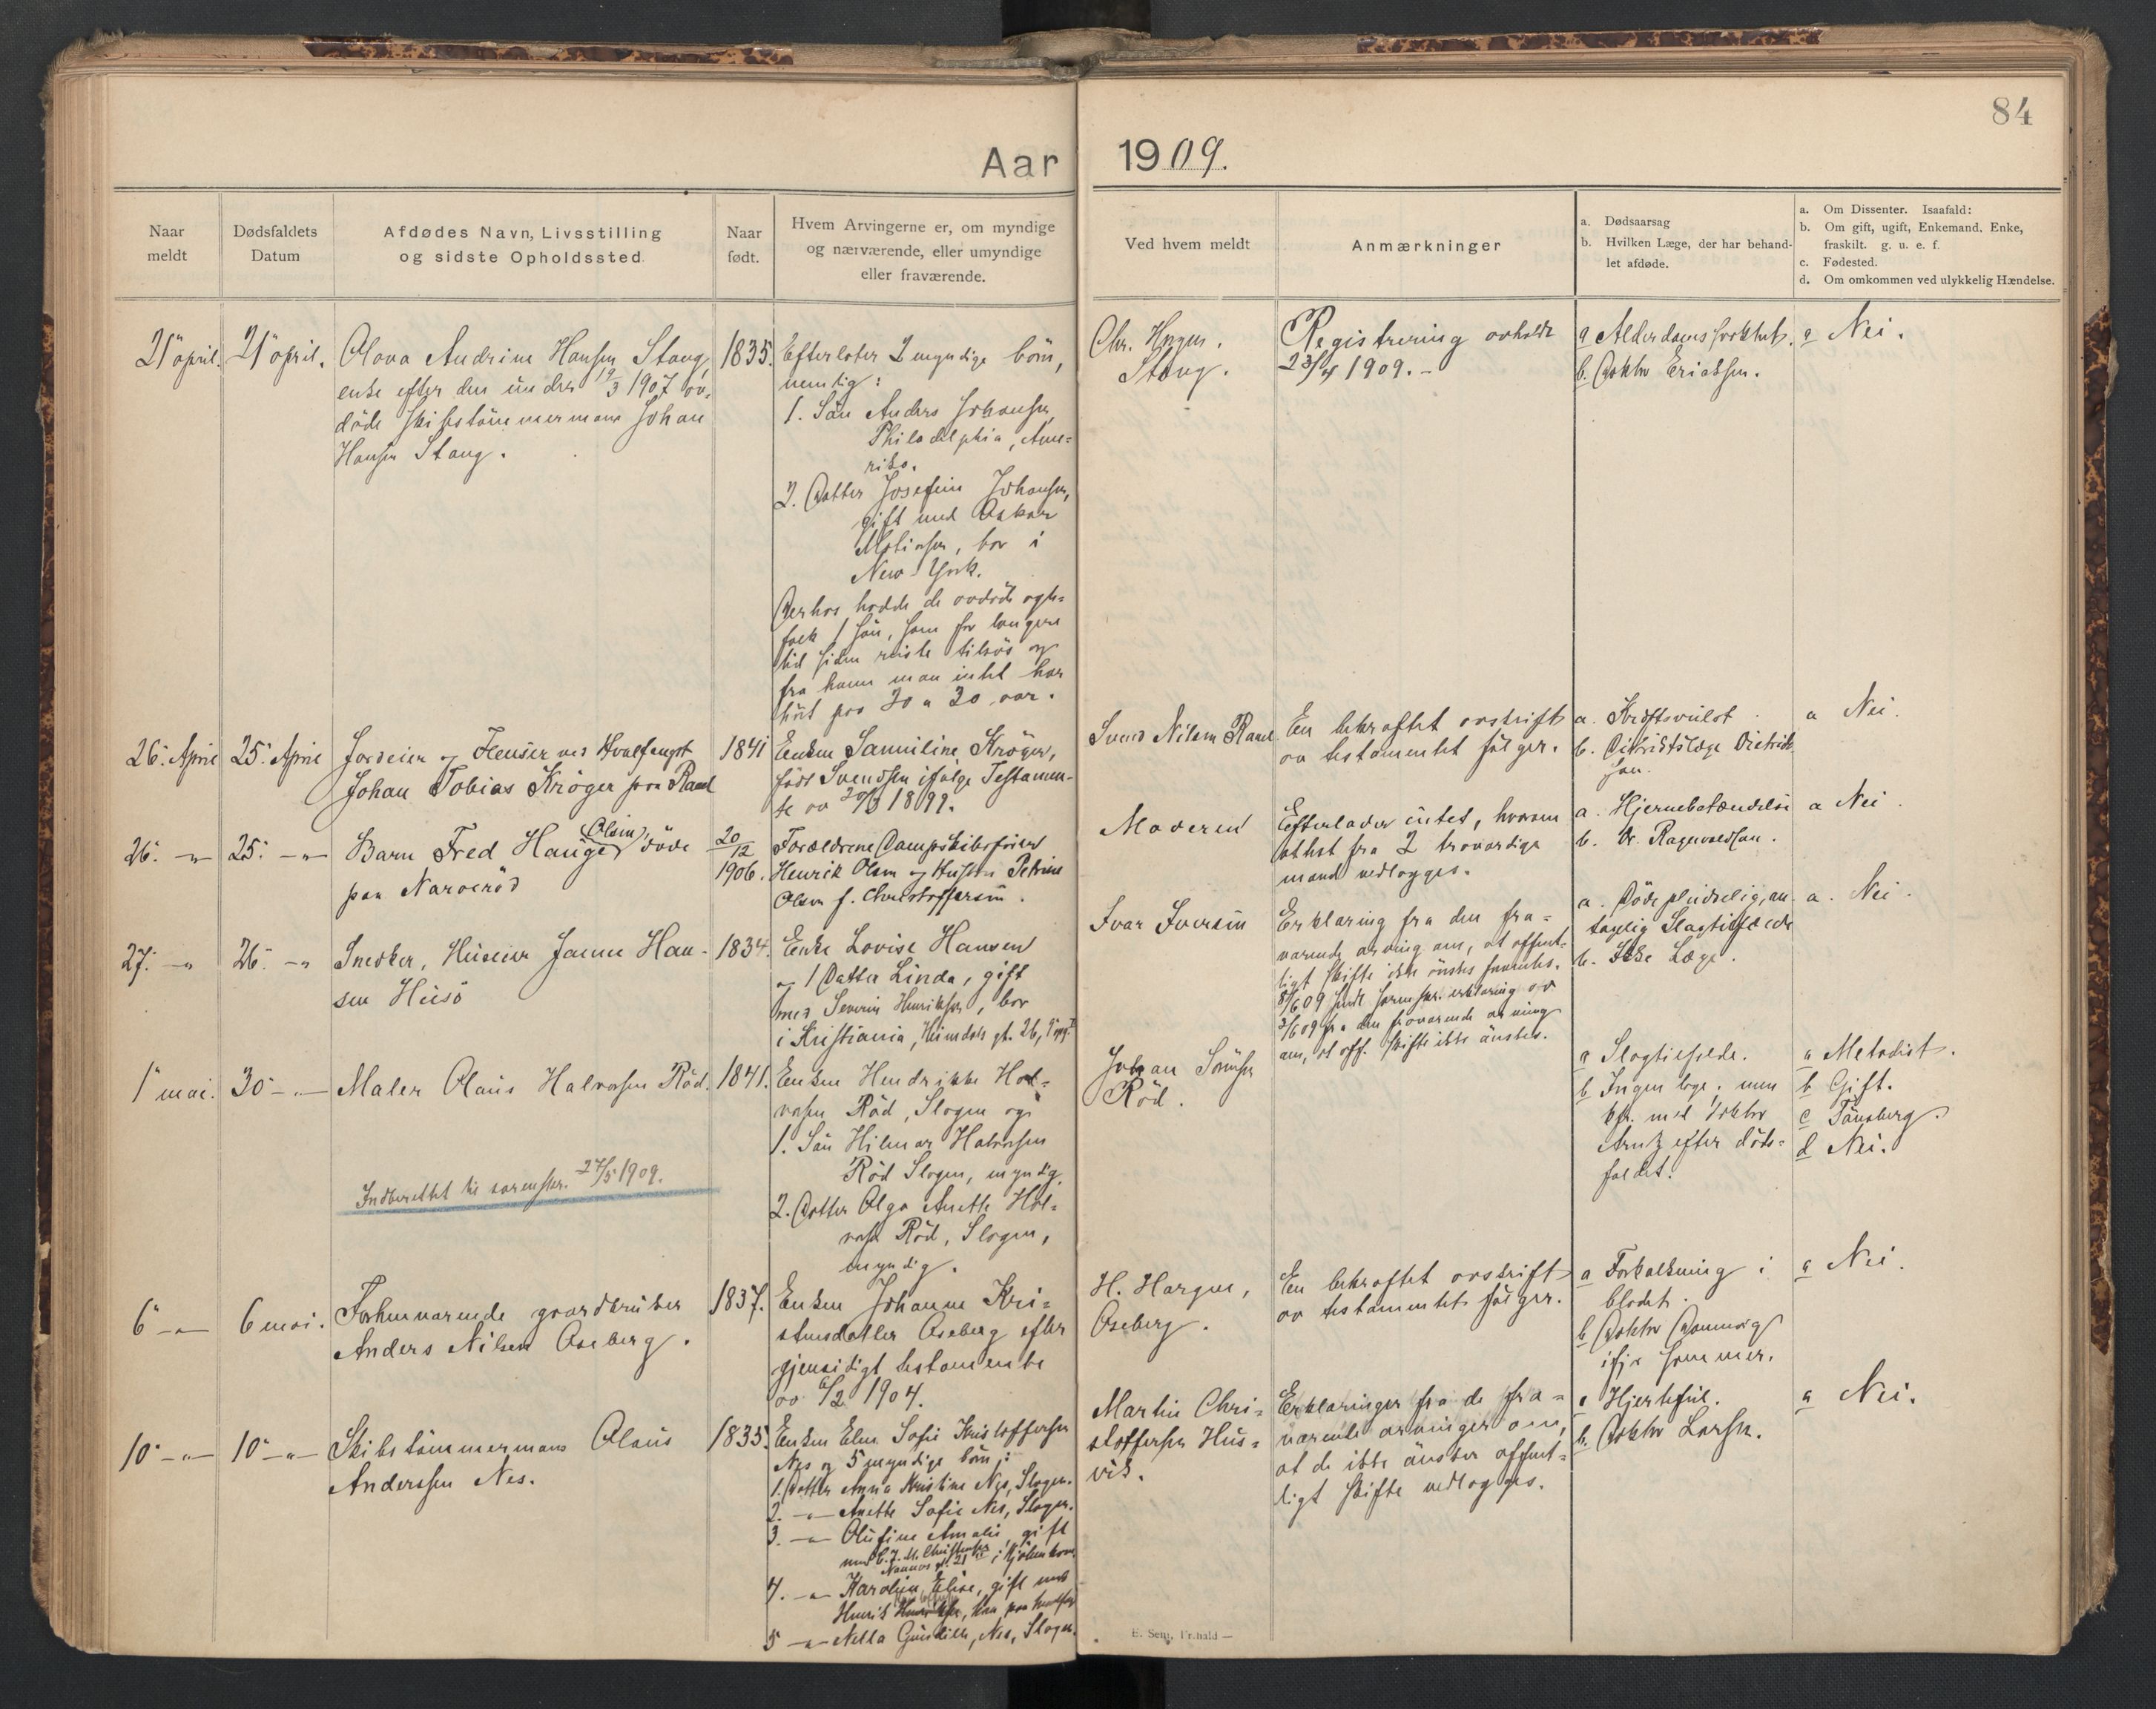 84
Aar 1909.
Naar meldt
Dødsfaldets Datum
Afdødes Navn, Livsstilling og sidste Opholdssted
Naar født.
Hvem Arvingerne er, om myndige og nærværende, eller umyndige eller fraværende.
Ved hvem meldt
Anmærkninger
a. Dødsaarsag
b. Hvilken Læge, der har behandlet afdøde.
a. Om Dissenter. Isaafald:
b. Om gift, ugift, Enkemand. Enke, fraskilt. g. u. e. f.
c. Fødested.
d. Om omkommen ved ulykkelig Hændelse.
21 april.
21 april.
Olava Andrine Hansen Stang,
enke efter den under 19/3 1907 av-
døde skibstømmermann Johan
Hansen Stang.
1835.
Efterlater 2 myndige børn,
nemlig:
1. Søn Anders Johansen,
Philadelphia, Ame-
rika.
2. Datter Josefine Johansen,
gift med Oskar
bor i
New-York.
Derhos hadde de avdøde egte-
folk 1 søn, som for længere
tid siden reiste tilsjøs og
fra hvem man intet har
hørt paa 20 a 30 aar.
Chr.
Stang.
Registrering avholdt
23/4 1909. -
a Alderdomssvakhet.
b. Doktor Eriksen.
a Nei.
26. April
25. April
Jordeier og Fleuser ved Hvalfangst
Johan Tobias Krøger paa Ramd
1841
Enken Samiline Krøger,
født Svendsen ifølge Testamen-
te av 20/3 1899.
Svend Nilsen
En bekræftet avskrift
av testamentet følger.
a. Kræftsvulst
b. Distriktslæge Dietrich-
son.
a Nei.
26. -"-
25. -"-
Barn Fred Hauge (Olsen), døde
paa Narverød
20/12
1906.
Forældrene Dampskibsfører
Henrik Olsen og Hustru Petrine
Olsen f. Christoffersen.
Moderen
Efterlader intet, hvorom
attest fra 2 troværdige
mænd vedlægges.
a. Hjernebetændelse
b. Dr. Ragnvaldsen.
a Nei.
27. -"-
26. -"-
Snedker, Huseier Janne Han-
sen Husø
1834.
Enke Lovise Hansen
og 1 Datter Linda, gift
med Severin Henriksen, bor
i Kristiania, Heimdals gt. 26,
Ivar Iversen
Erklæring fra den fra-
værende arving om, at offent-
ligt skifte ikke ønskes fremmes.
8/6 09 sendt sorenskr. erklæring av
3/6 09 fra den fraværende arving
om, at off. skifte ikke ønskes.
a. Døde pludselig, an-
tagelig Slagtilfælde
b. Ikke Læge.
a. Nei.
1 mai.
30 -"-
Maler Olaus Halvorsen Rød.
1841.
Enken Hendrikke Hal-
vorsen Rød, Slagen og
1. Søn Hilmar Halvorsen
Rød Slagen, myndig.
2. Datter Olga Anette Hal-
vorsen Rød, Slagen,
myndig.
Indberettet til sorenskr. 27/5 1909.
Johan Sørensen
Rød.
a Slagtilfælde.
b Ingen læge, men
kfr. med doktor
Arntz efter døds-
faldet.
a Metodist.
b Gift.
c Tønsberg.
d Nei.
6 -"-
6 mai.
Forhenværende gaardbruker
Anders Nilsen Oseberg.
1837.
Enken Johanne Kri-
stensdatter Oseberg efter
gjensidigt testamente
av 6/2 1904.
H. Hargen,
Oseberg.
En bekræftet avskrift
av testamentet følger.
a Forkalkning i
blodet.
b Doktor
ifjor sommer.
a Nei.
10 -"-
10 -"-
Skibstømmermann Olaus
Anderssen Nes.
1835.
Enken Elen Sofie Kristoffersen
Nes og 5 myndige børn:
1. Datter Anna Kristine Nes, Slagen.
2. -"- Anette Sofie Nes, Slagen.
3. -"- Olufine Amalie, gift
med C. J. M. Christensen
21 i Kjøbenhavn
4. -"- Karoline Elise, gift med
Henrik
5 -"- Nella Nes, Slagen.
Martin Chri-
stoffersen Hus-
vik.
Erklæringer fra de fra-
værende arvinger om,
at de ikke ønsker offent-
ligt skifte vedlægges.
a Hjertefeil.
b. Doktor Larsen.
a Nei.
E. Sem, Fr.hald —